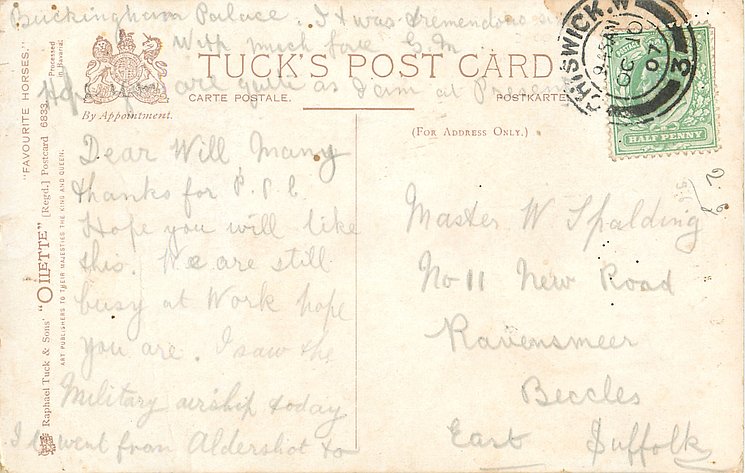 Buckingham Palace. It was tremendous
With much love G.M
Hope you are quite as I am at Present
TUCK'S POST CARD
CARTE POSTALE.
POSTKARTE
By Appointment.
(FOR ADDRESS ONLY.)
"FAVOURITE HORSES."
Processed in Bavaria.
Raphael Tuck & Sons' "OILETTE" [Regd.] Postcard 6833.
ART PUBLISHERS TO THEIR MAJESTIES THE KING AND QUEEN.
CHISWICK.W
OC
07
3
POSTAGE
HALF PENNY
Dear Will Many
thanks for P.P.C.
Hope you will like
this. We are still
busy at Work hope
you are. I saw the
Military airship today
It went from Aldershot to
Master W. Spalding
No 11 New Road
Ravensmeer
Beccles
East Suffolk